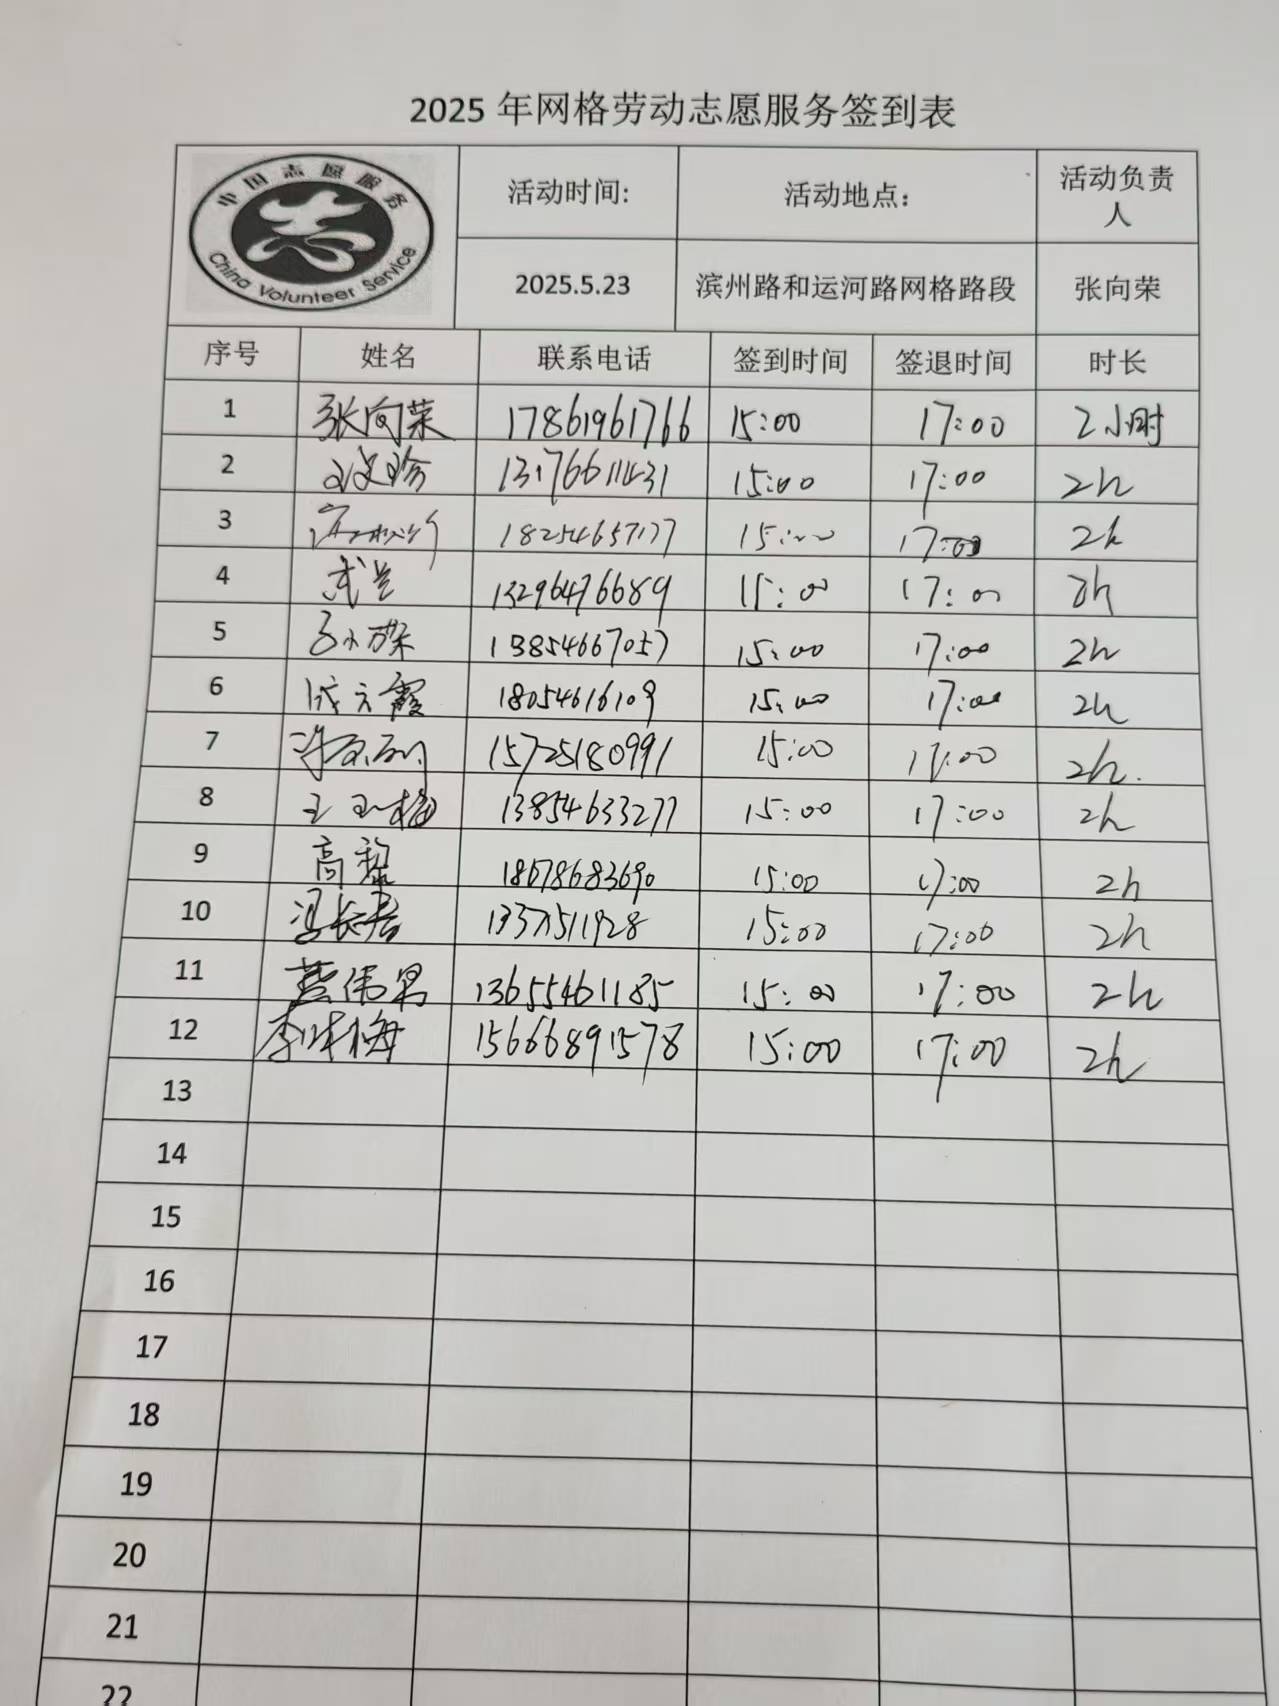 2025 年网格劳动志愿服务签到表
中国志愿服务
China Volunteer Service
活动时间: 活动地点： 活动负责人
2025.5.23 滨州路和运河路网格路段 张向荣
序号 姓名 联系电话 签到时间 签退时间 时长
1 张向荣 17861961766 15:00 17:00 2小时
2 15:00 17:00 2h
3 18254657177 15:00 17:00 2h
4 武兰 13296476689 15:00 17:00 2h
5 13854667057 15:00 17:00 2h
6 18054616109 15:00 17:00 2h
7 15725180991 15:00 17:00 2h.
8 王玉梅 13854633277 15:00 17:00 2h
9 高黎 18678683690 15:00 17:00 2h
10 冯长君 15:00 17:00 2h
11 13655461185 15:00 17:00 2h
12 15666891578 15:00 17:00 2h
13
14
15
16
17
18
19
20
21
22